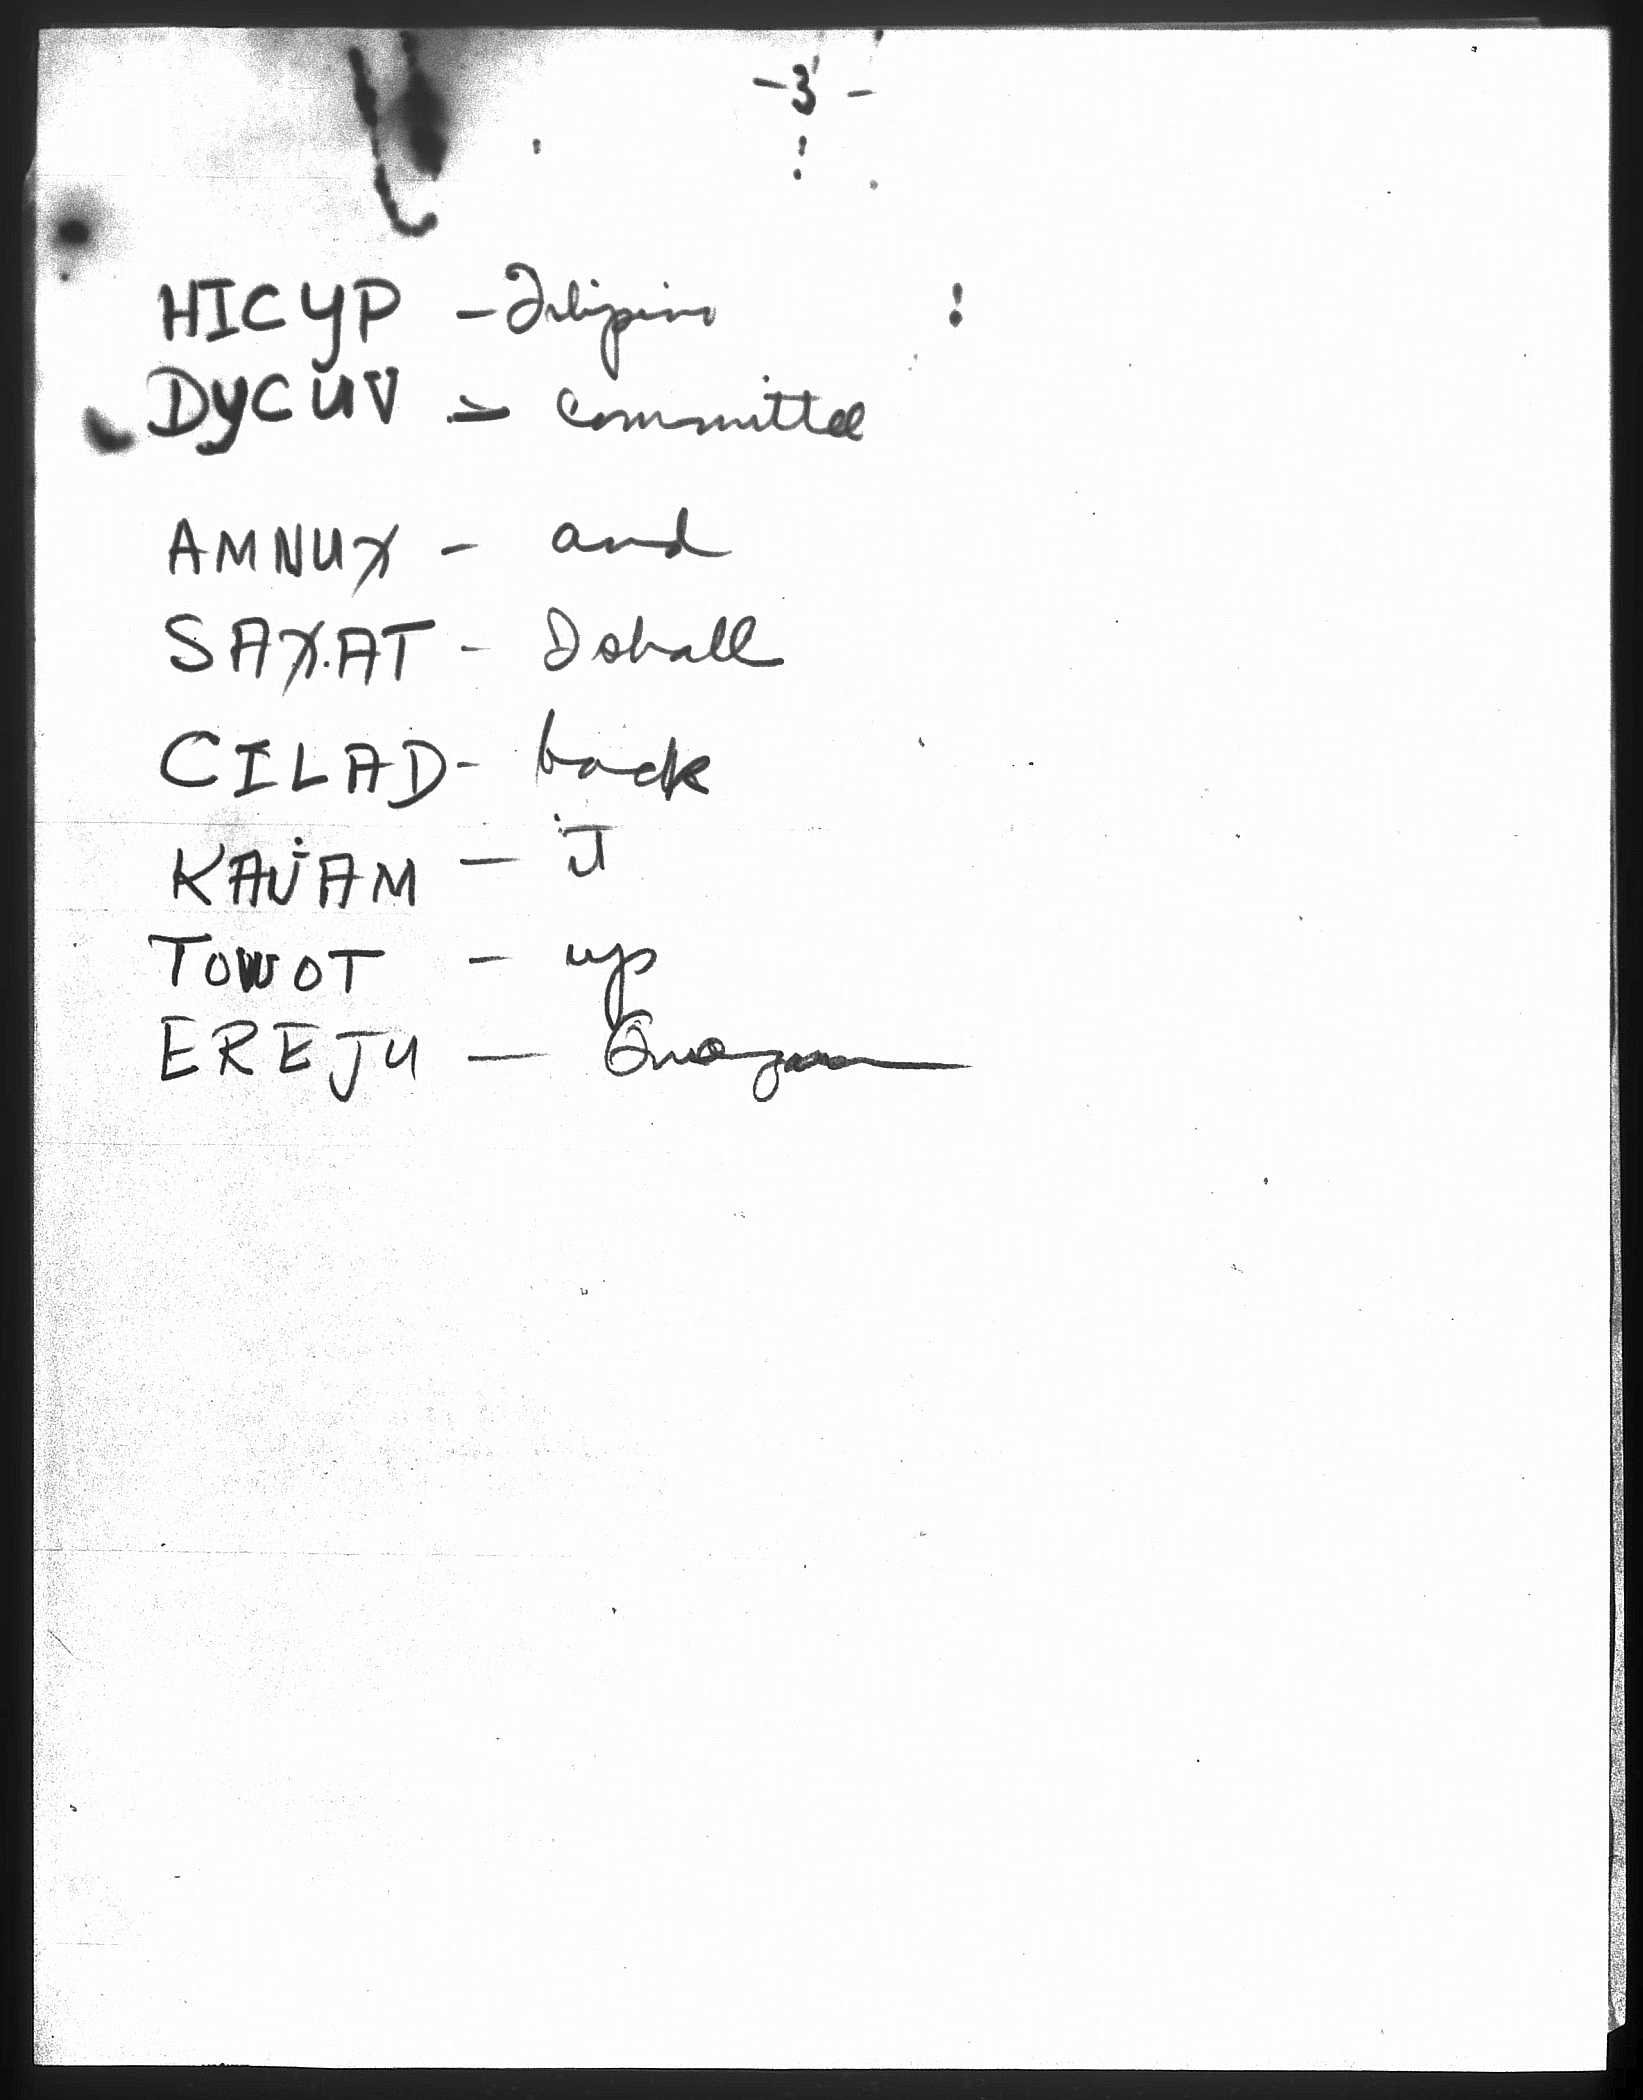 -3-
HICYP - Filipino
DYCUV - Committee
AMNUX - and
SAXAT - I shall
CILAD - back
KAJAM - it
TOWOT - up
EREJU - Quezon